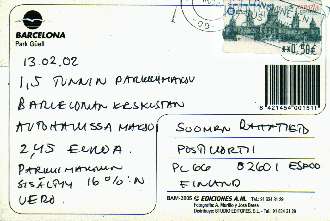 BARCELONA
Park Güell
**0,50€
13.02.02
1,5 TUNNIN PARKKIMAKSU
BARCELONAN KESKUSTAN
AUTOHALLISSA MAKSOI
2,45 EUROA.
PARKKIMAKSUUN
SISÄLTYY 16%:N
VERO.
8 421454 001811
SUOMEN RAHATIETO
POSTIKORTTI
PL 66 02601 ESPOO
FINLAND
BAM-2005 © EDICIONES A.M.